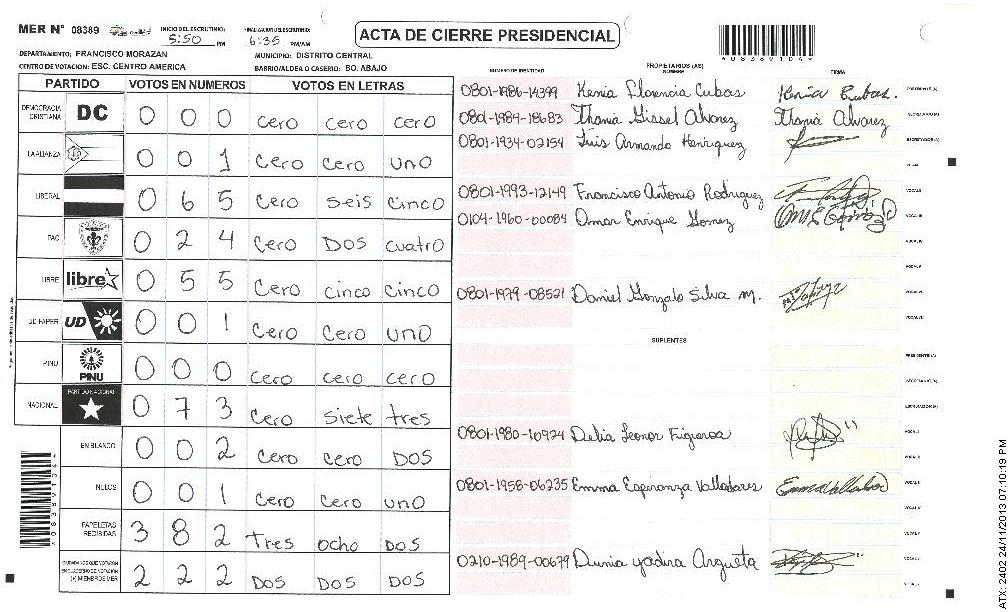 MER N° 08389
INICIO DEL ESCRUTINIO: 5:50 PM
FINALIZACION ESCRUTINIO: 6:35 PM/AM
ACTA DE CIERRE PRESIDENCIAL
*08389104*
DEPARTAMENTO: FRANCISCO MORAZAN
MUNICIPIO: DISTRITO CENTRAL
CENTRO DE VOTACION: ESC. CENTRO AMERICA
BARRIO/ALDEA O CASERIO: BO. ABAJO
PARTIDO VOTOS EN NUMEROS VOTOS EN LETRAS
DEMOCRACIA CRISTIANA DC 0 0 0 cero cero cero
LA ALIANZA 0 0 1 cero cero uno
LIBERAL 0 6 5 cero seis cinco
PAC 0 2 4 cero Dos cuatro
LIBRE libre 0 5 5 cero cinco cinco
UD FAPER UD 0 0 1 cero cero uno
PINU PINU 0 0 0 cero cero cero
NACIONAL PARTIDO NACIONAL 0 7 3 cero siete tres
EN BLANCO 0 0 2 cero cero DOS
NULOS 0 0 1 cero cero uno
PAPELETAS RECIBIDAS 3 8 2 tres ocho DOS
CIUDADANOS QUE VOTARON EN CUADERNO DE VOTACION (+) MIEMBROS MER 2 2 2 DOS DOS DOS
*08389104*
NUMERO DE IDENTIDAD PROPIETARIOS (AS) NOMBRE FIRMA
0801-1986-14399 Kenia Florencia Cubas Kenia Cubas. PRESIDENTE (A)
0801-1984-18683 Thania Gissel Alvarez Thania Alvarez SECRETARIO (A)
0801-1934-02154 Luis Armando Henriquez ESCRUTADOR (A)
VOCAL I
0801-1993-12149 Francisco Antonio Rodriguez VOCAL II
0104-1960-00084 Omar Enrique Gomez VOCAL III
VOCAL IV
VOCAL V
0801-1979-08521 Daniel Gonzalo Silva M. VOCAL VI
VOCAL VII
SUPLENTES
PRESIDENTE (A)
SECRETARIO (A)
ESCRUTADOR (A)
0801-1980-10924 Delia Leonor Figueroa VOCAL I
VOCAL II
0801-1958-06235 Emma Esperanza Valladares Emma Valladares VOCAL III
VOCAL IV
0210-1989-00679 Dunia yadira Argueta VOCAL V
ATX: 2402 24/11/2013 07:10:19 PM